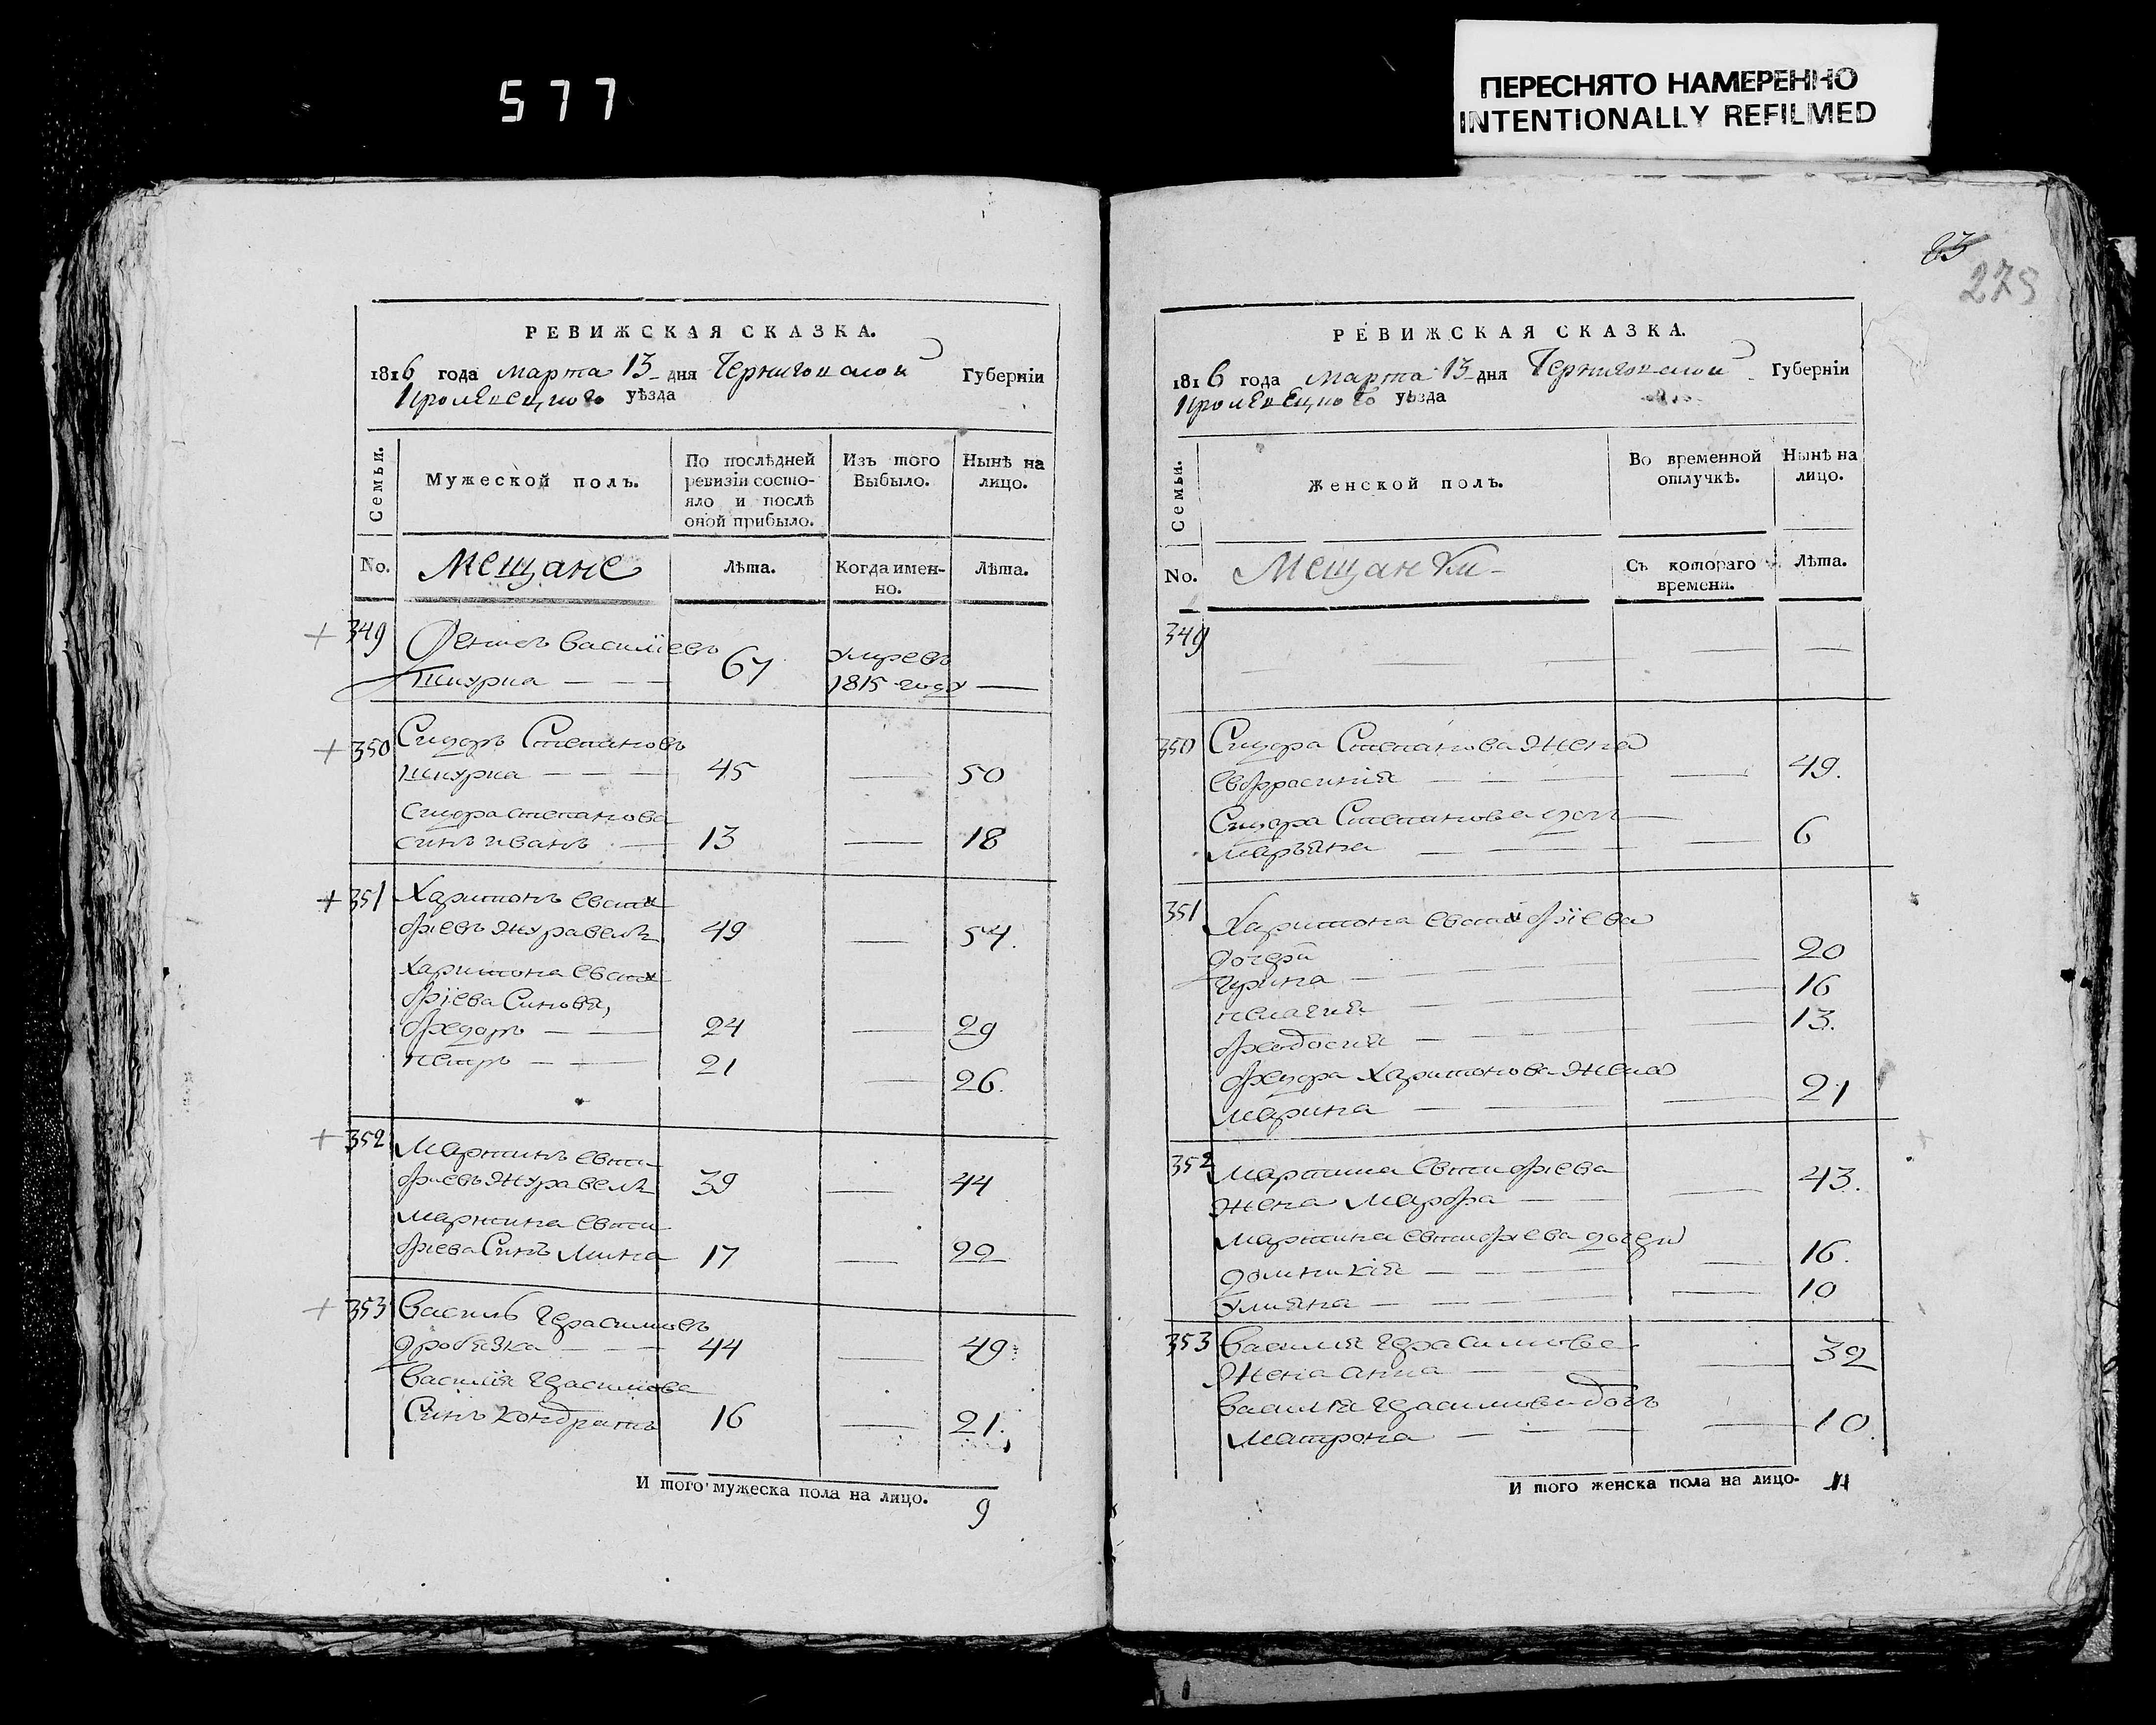 577
ПЕРЕСНЯТО НАМЕРЕННО
INTENTIONALLY REFILMED
РЕВИЖСКАЯ СКАЗКА.
1816 года марта 13 дня Черниговской Губерніи
Кролевецкого уѣзда
Семьи.
Мужеской полъ.
По послѣдней ревизіи состо-
яло и послѣ
оной прибыло.
Изъ того
Выбыло.
Нынѣ на
лицо.
No.
Мещане
Лѣта.
Когда имен-
но.
Лѣта.
349 Василіевъ
Шкурка 67 умревъ
1815 году
350 Сидоръ Степановъ
шкурка 45 50
Сидора Степанова
синъ иванъ 13 18
351 Харитонъ Евти
фіевъ Журавель 49 54.
Харитона Евти
фіева Синовя,
федоръ 24 29
петръ 21 26.
352 Мартинъ Евти
фіевъ Журавель 39 44
Мартина Евти
фіева Синъ Мина 17 22
353 Василь Герасимовъ
дробязка 44 49
Василія Герасимова
Синъ Кондратъ 16 21.
И того мужеска пола на лицо. 9
83
РЕВИЖСКАЯ СКАЗКА.
1816 года марта 13 дня Черниговской Губерніи
Кролевецкого уѣзда
Семьи.
Женской полъ.
Во временной
отлучкѣ.
Нынѣ на
лицо.
No.
Мещанки
Съ котораго
времени.
Лѣта.
349
350 Сидора Степанова Жена
Евфросинія 49.
Сидора Степанова дочь
Марьяна 6
351 Харитона Евтифіева
дочери
Ирина 20
пелагия 16
феодосия 13.
федора Харитонова Жена
Марина 21
352 Мартина Евтифіева
Жена Марфа 43.
Мартина Евтифіева дочери
домникія 16.
Улияна 10
353 Василия Герасимова
Жена Анна 32
Василия Герасимова дочь
Матрона 10.
И того женска пола на лицо. 11